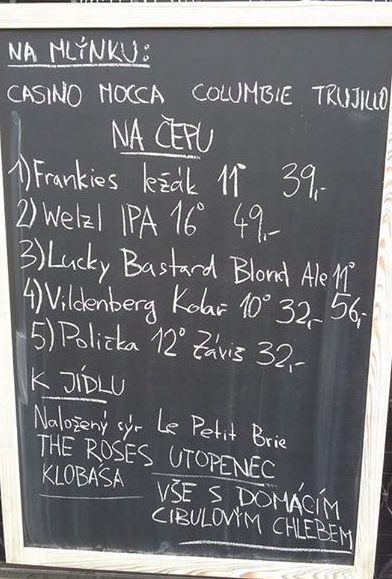 NA MLÝNKU:
CASINO MOCCA COLUMBIE TRUJILLO
NA ČEPU
1) Frankies ležák 11° 39,-
2) Welzl IPA 16° 49,-
3) Lucky Bastard Blond Ale 11° 56,-
4) Vildenberg Kolař 10° 32,-
5) Polička 12° Záviš 32,-
K JÍDLU
Naložený sýr Le Petit Brie
THE ROSES UTOPENEC
KLOBÁSA
VŠE S DOMÁCÍM
CIBULOVÝM CHLEBEM